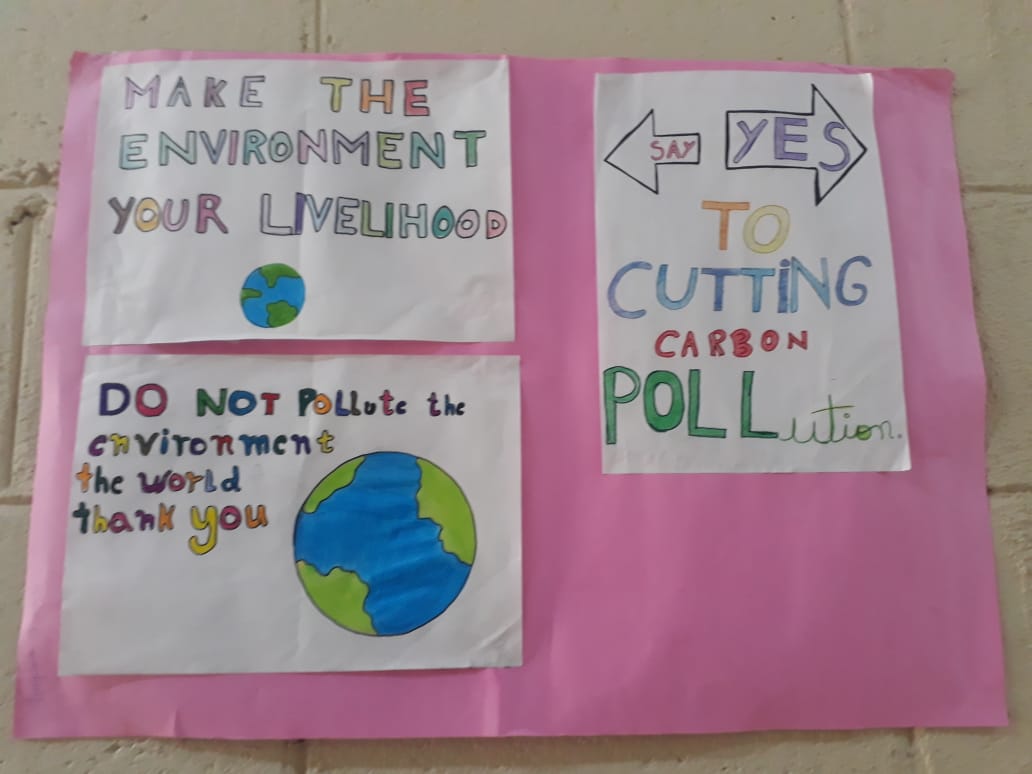 MAKE THE
ENVIRONMENT
YOUR LIVELIHOOD
DO NOT POLLute the
environment
the world
thank you
SAY YES
TO
CUTTiNG
CARBON
POLLution.